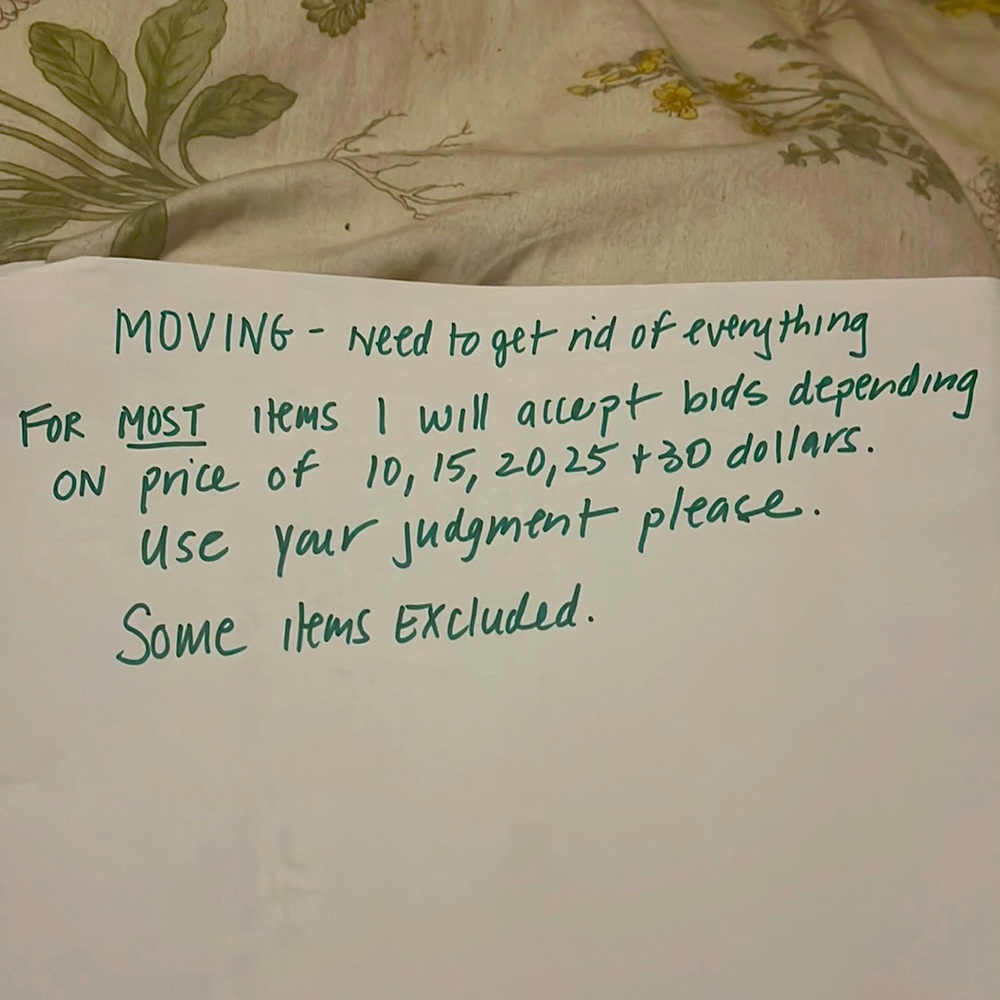 MOVING - Need to get rid of everything
FOR MOST items I will accept bids depending
ON price of 10, 15, 20, 25 + 30 dollars.
Use your judgment please.
Some items EXCluded.